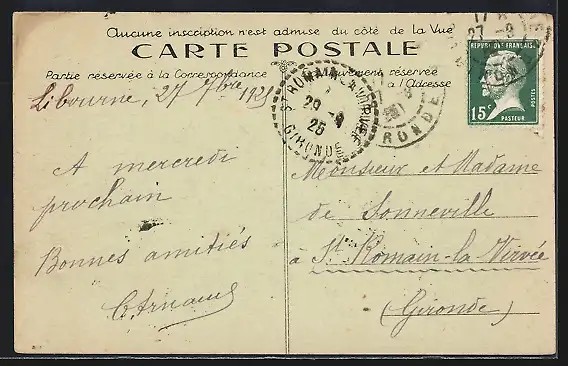 Aucune inscription n'est admise du côté de la Vue
CARTE POSTALE
Partie réservée à la Correspondance
réservée
à l'Adresse
Libourne, 27 7bre 1925
A mercredi
prochain
Bonnes amitiés
ST ROMAIN-LA-VIRVÉE
20 -9
25
GIRONDE
GIRONDE
27 -9
RÉPUBLIQUE FRANÇAISE
15c
POSTES
PASTEUR
Monsieur et Madame
de Sonneville
à St Romain-la Virvée
(Gironde)